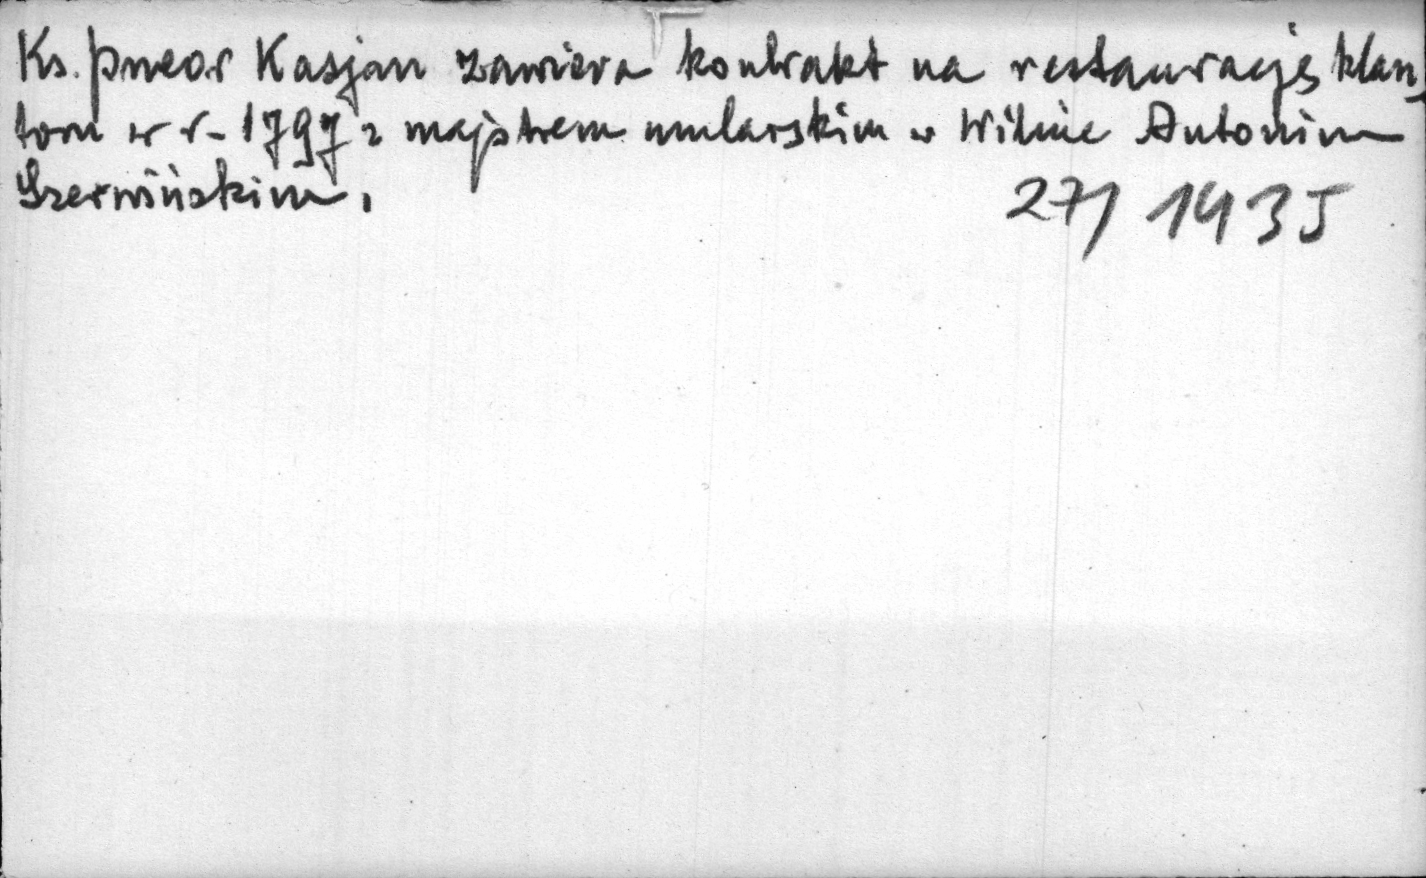 Ks. przeor Kasjan zawiera kontrakt na restaurację klasz
toru w r. 1797 z majstrem mularskim w Wilnie Antonim
Szerwińskim.
27/ 1935